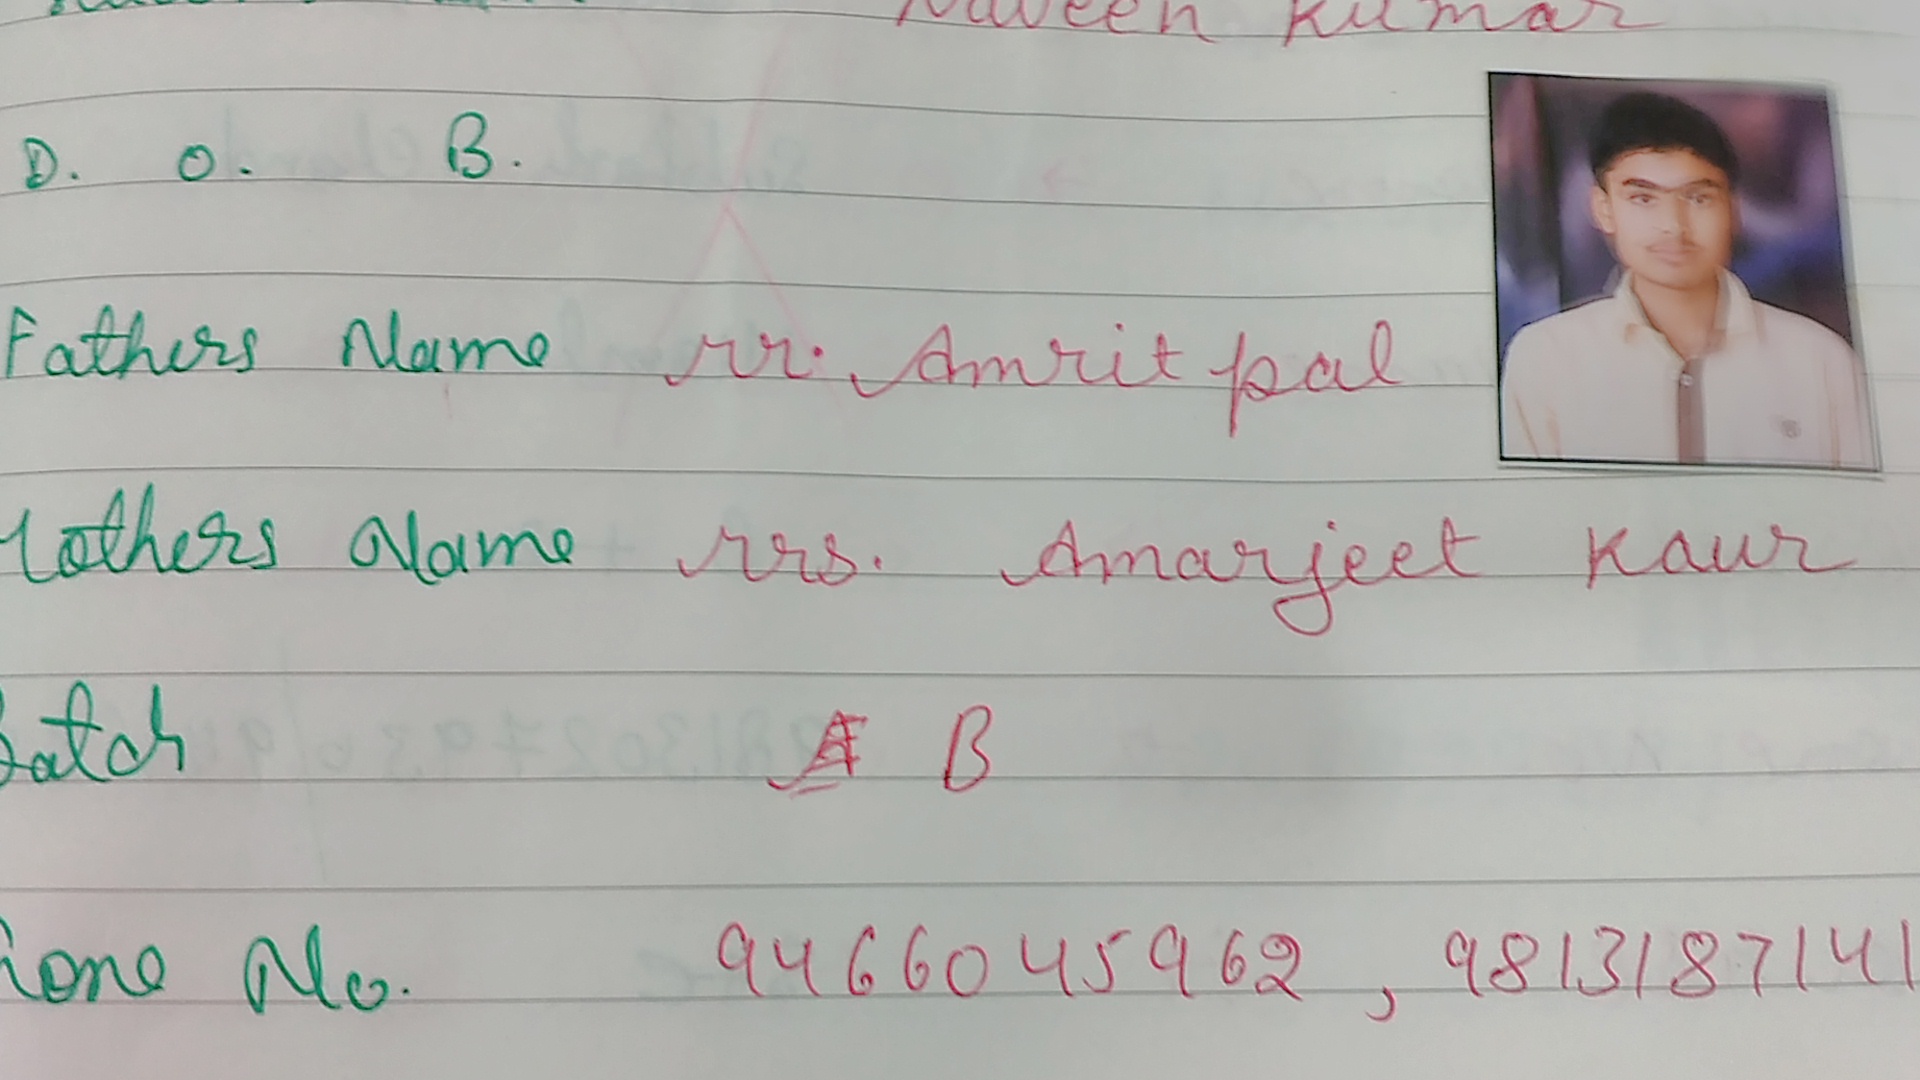 Naveen Kumar
D. O. B.
Fathers Name Mr. Amrit pal
Mothers Name Mrs. Amarjeet Kaur
Batch B
Phone No. 9466045962, 9813187141